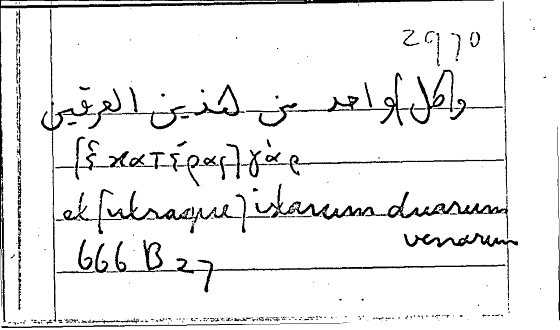 2970
و[كل] واحد من هذين العرقين
[ἑκατέρας] γὰρ
et [utraque] istarum duarum
venarum
666 B 27